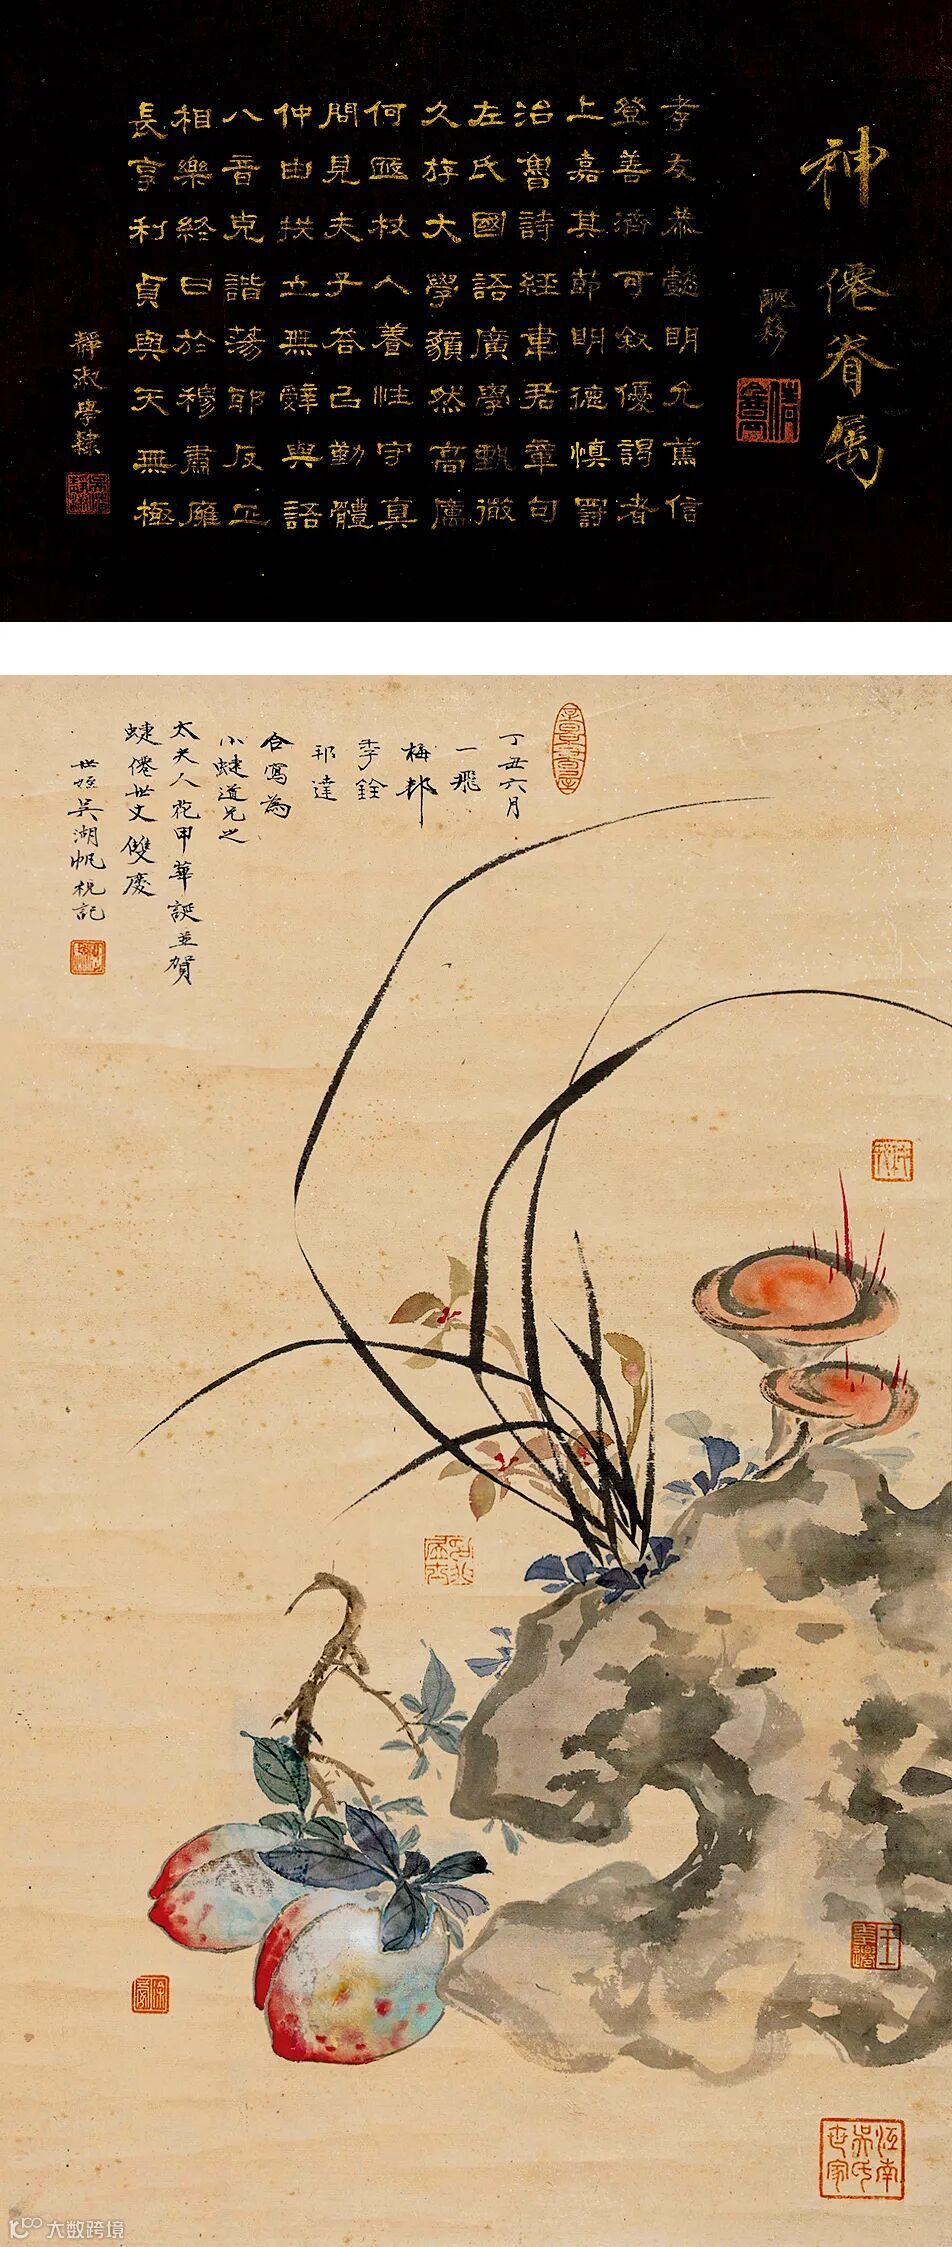 神僊眷属
醜簃
孝友恭懿明允篤信
登善濟可叙優謁者
上嘉其節明德慎罰
治魯詩經韋君章句
左氏國語廣學甄微
久存大學藐然高厲
何匜杖人養性守真
問見夫子答己勤體
仲由拱立無辭與語
八音克諧蕩耶反正
相樂終日於穆肅雍
長享利貞與天無極
靜淑學隸
丁丑六月
一飛
梅邨
季銓
邦達
合寫為
小蜨道兄之
太夫人花甲華誕並賀
蜨僊世丈雙慶
世姪吳湖帆祝記
江南吳氏世家
大数跨境